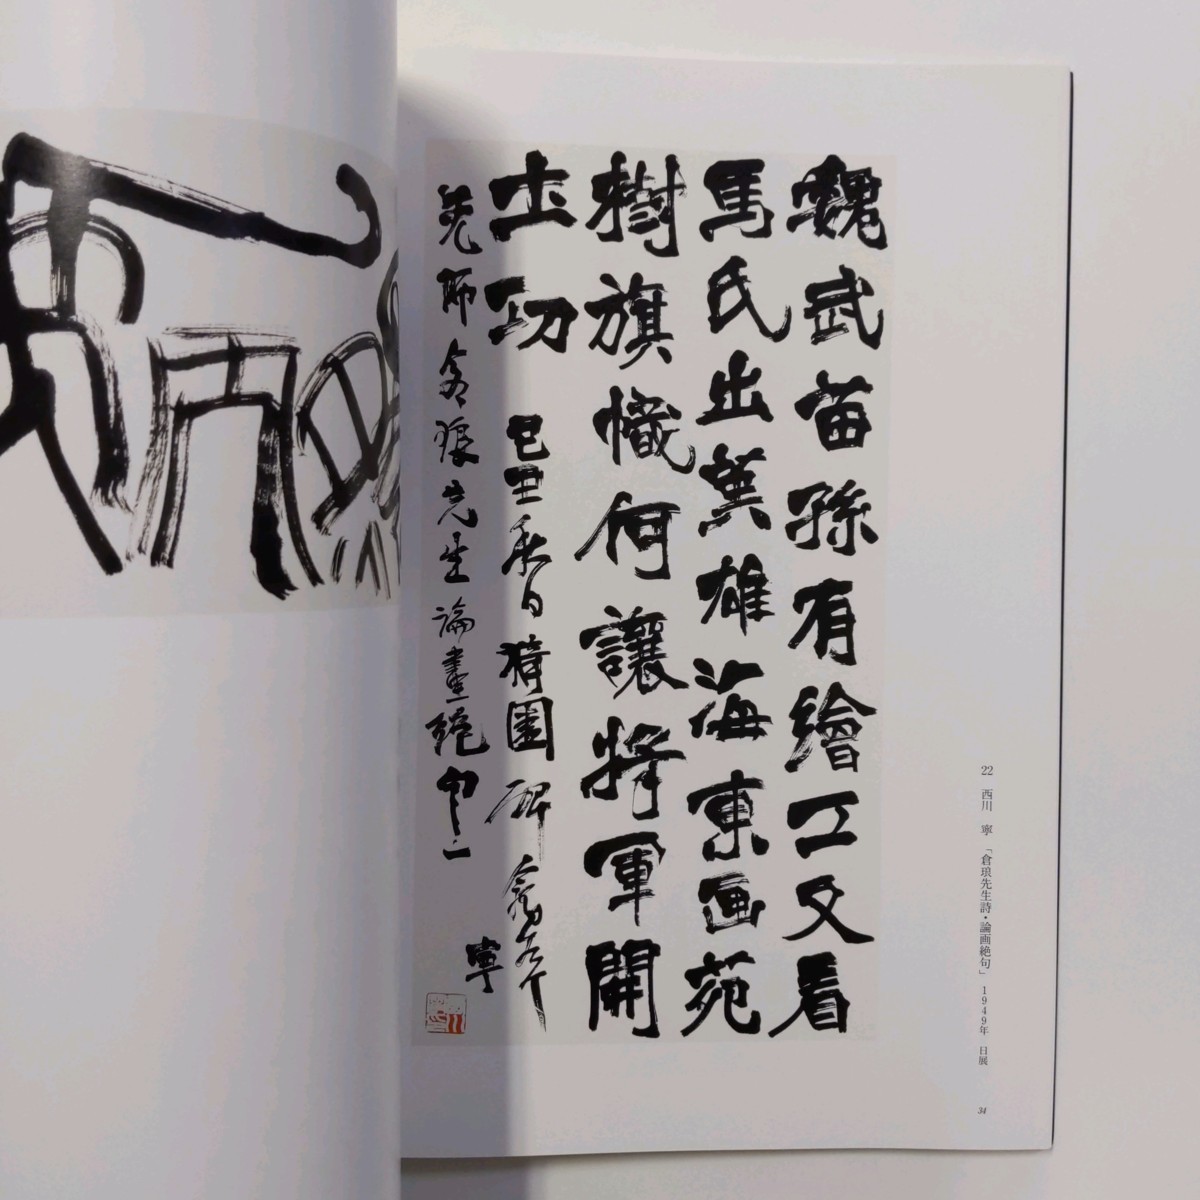 魏武苗孫有繪工又看
馬氏出英雄海東画苑
樹旗幟何讓将軍開
土功
己丑秋日
先師倉琅先生論畫絶句之一
寧
22 西川 寧「倉琅先生詩・論画絶句」 1949年 日展
34